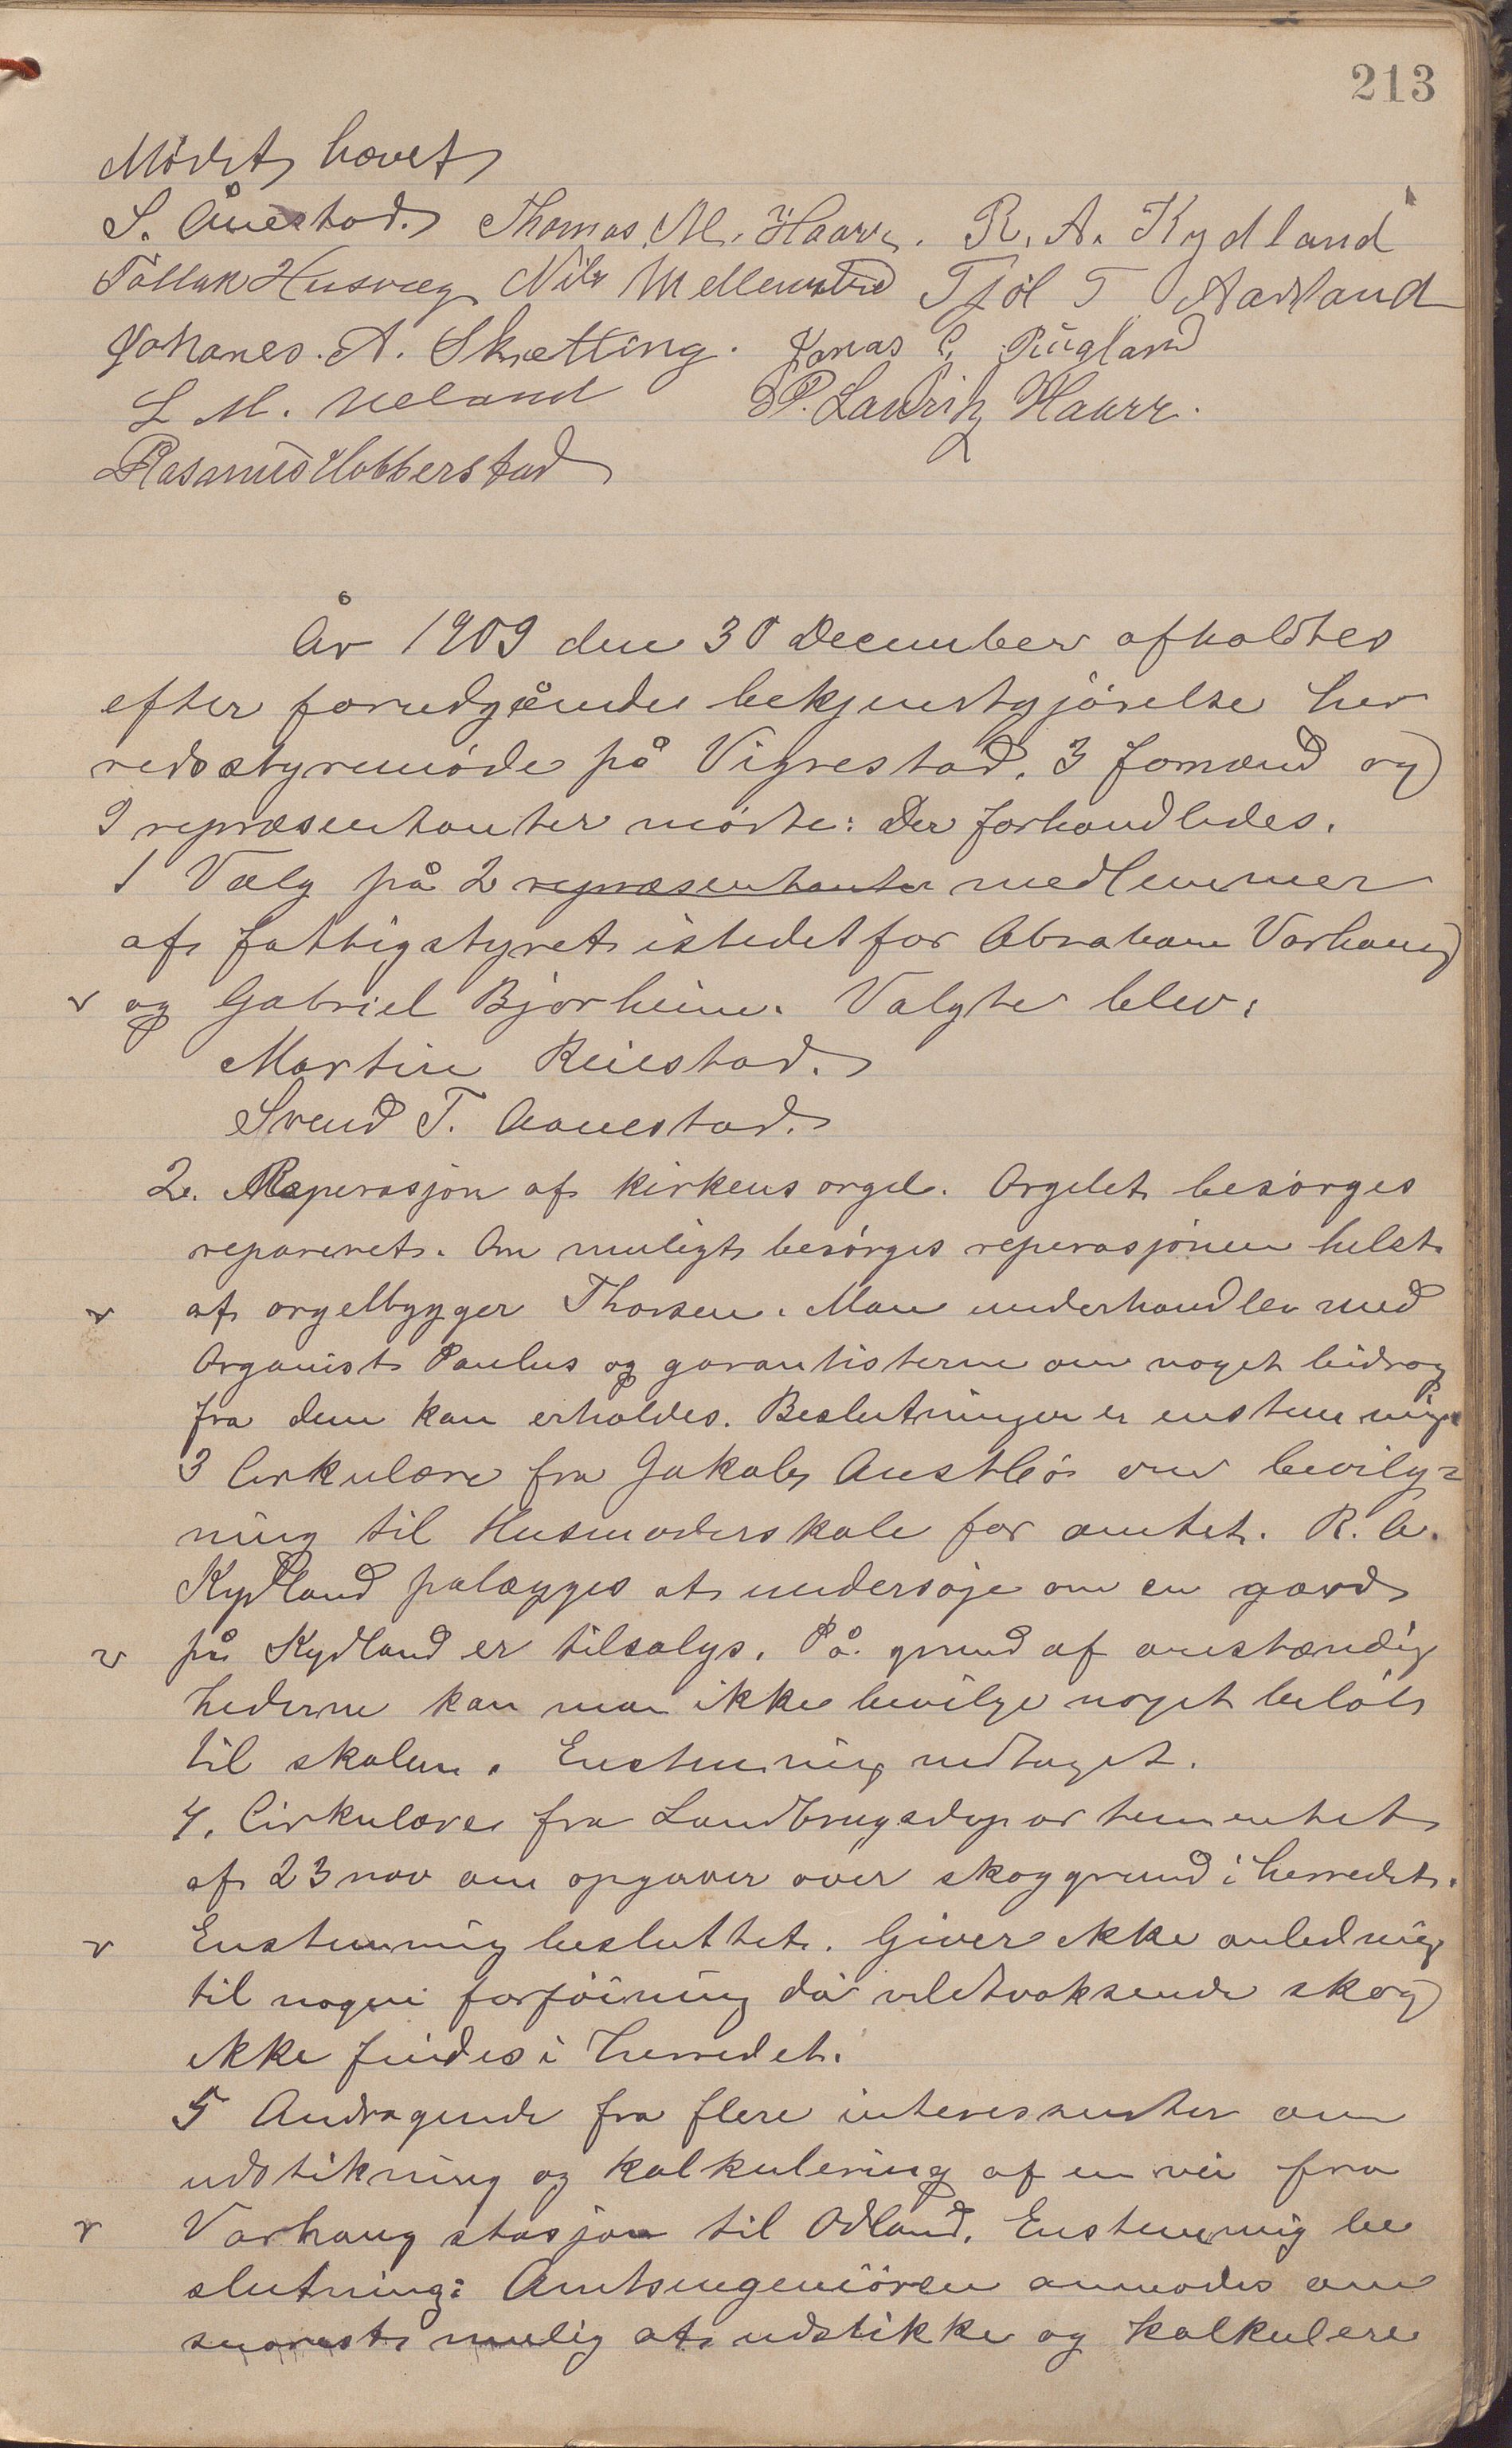 213
Mødet hævet
S. Ånestad. Thomas M. Haarr. R. A. Kydland
Tollak Husvæg Nils Mellemstrd Tjøl T Aadland
Johanes. A. Skretting. Jonas C. Rügland
L M. Ueland P. Lauritz Haarr.
Rasmus Hobberstad
År 1909 den 30 December afholdtes
efter forudgående bekjendtgjørelse her
redsstyremøde på Vigrestad. 3 formænd og
9 repræsentanter mødte: Der forhandledes.
1 Valg på 2 repræsentanter medlemmer
af fattigstyret istedetfor Abraham Varhaug
v og Gabriel Bjorheim. Valgte blev:
Martin Reiestad.
Svend T. Aanestad.
2. Reperasjon af kirkens orgel. Orgelet besørges
repareret. Om muligt besørges reperasjonen helst
v af orgelbygger Thorsen. Man underhandler med
Organist Paulus og garantisterne om noget bidrag
fra dem kan erholdes. Beslutningen er enstemmig
3 Cirkulære fra Jakob Austbø om bevilg=
ning til Husmoderskole for amtet. R. A.
Kydland palægges at undersøge om en gaard
v på Kydland er tilsalgs. På grund af omstændig
hederne kan man ikke bevilge noget beløb
til skolen. Enstemmig vedtaget.
4. Cirkulære fra Landbrugsdepartementet
af 23 nov om opgaver over skoggrund i herredet.
v Enstemmig besluttet. Giver ikke anledning
til nogen forføining da vildtvoksende skog
ikke findes i herredet.
5 Andragende fra flere interessenter om
udstikning og kalkulering af en vei fra
v Varhaug stasjon til Odland. Enstemmig be
slutning: Amtsingeniøren anmodes om
snarest mulig at udstikke og kalkulere